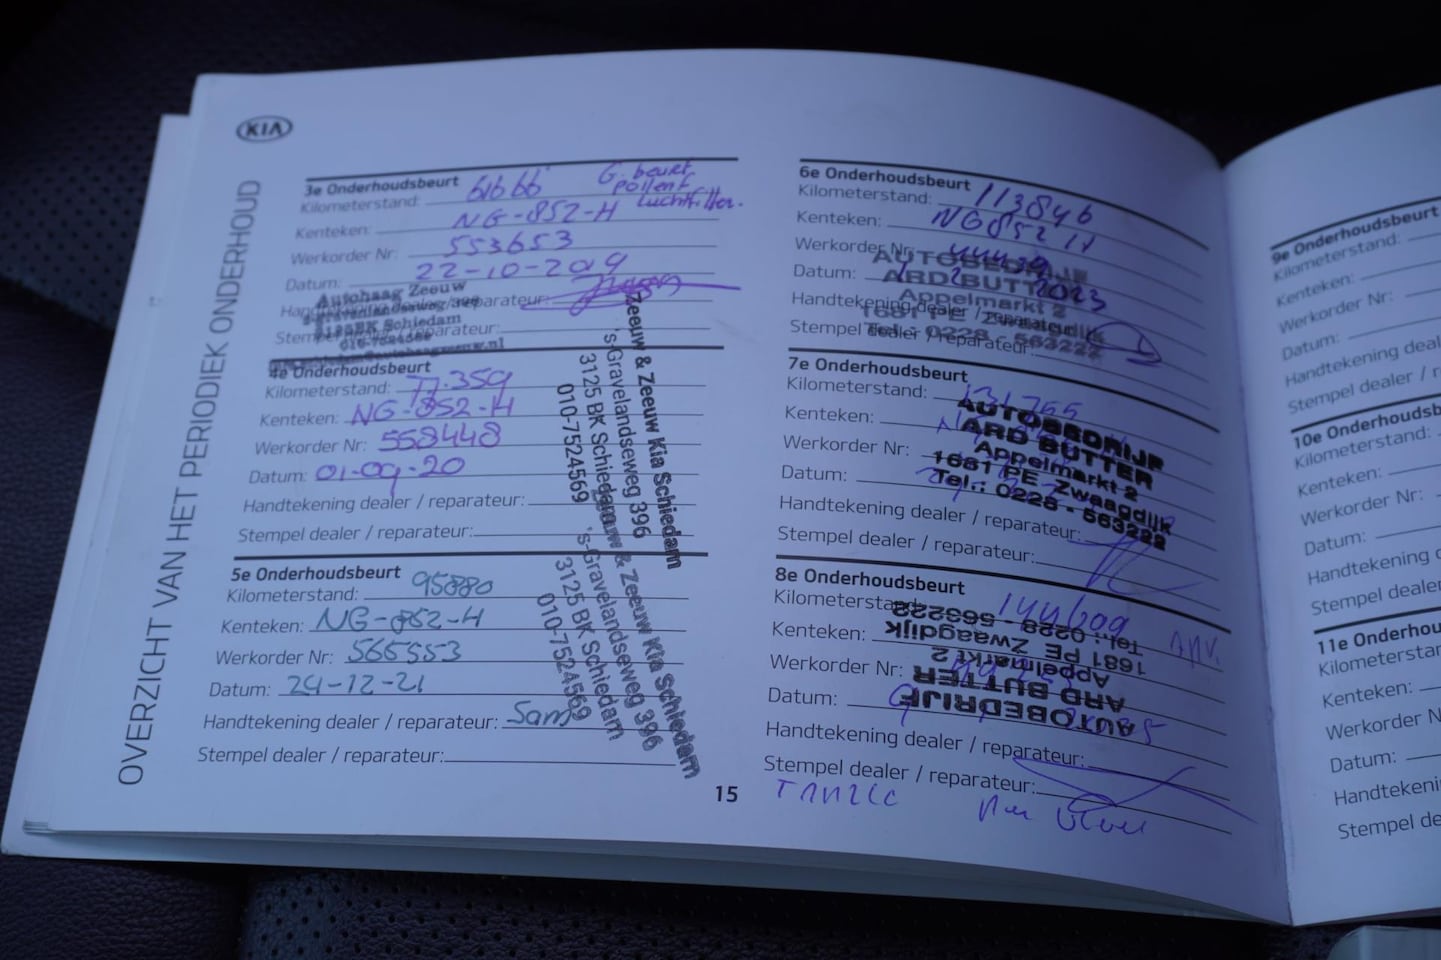 KIA
OVERZICHT VAN HET PERIODIEK ONDERHOUD
3e Onderhoudsbeurt
Kilometerstand: 61666
G. beurt
pollenf
luchtfilter.
Kenteken: NG-852-H
Werkorder Nr: 553653
Datum: 22-10-2019
Handtekening dealer / reparateur:
Stempel dealer / reparateur:
Autohaag Zeeuw
3125BK Schiedam
010-7524569
4e Onderhoudsbeurt
Kilometerstand: 77.359
Kenteken: NG-852-H
Werkorder Nr: 558448
Datum: 01-09-20
Handtekening dealer / reparateur:
Stempel dealer / reparateur:
Zeeuw & Zeeuw Kia Schiedam
's-Gravelandseweg 396
3125 BK Schiedam
010-7524569
5e Onderhoudsbeurt
Kilometerstand: 95880
Kenteken: NG-852-H
Werkorder Nr: 565553
Datum: 24-12-21
Handtekening dealer / reparateur: Sam
Stempel dealer / reparateur:
Zeeuw & Zeeuw Kia Schiedam
's-Gravelandseweg 396
3125 BK Schiedam
010-7524569
15
6e Onderhoudsbeurt
Kilometerstand: 113846
Kenteken: NG852H
Werkorder Nr:
Datum: 2023
Handtekening dealer / reparateur:
Stempel dealer / reparateur:
AUTOBEDRIJF
ARD BUTTER
Appelmarkt 2
1681 PE Zwaagdijk
Tel.: 0228 - 563222
7e Onderhoudsbeurt
Kilometerstand: 131755
Kenteken:
Werkorder Nr:
Datum:
Handtekening dealer / reparateur:
Stempel dealer / reparateur:
AUTOBEDRIJF
ARD BUTTER
Appelmarkt 2
1681 PE Zwaagdijk
Tel.: 0228 - 563222
8e Onderhoudsbeurt
Kilometerstand: 144609
Kenteken:
Werkorder Nr:
Datum:
Handtekening dealer / reparateur:
Stempel dealer / reparateur:
AUTOBEDRIJF
ARD BUTTER
Appelmarkt 2
1681 PE Zwaagdijk
Tel.: 0228 - 563222
9e Onderhoudsbeurt
Kilometerstand:
Kenteken:
Werkorder Nr:
Datum:
Handtekening deal
Stempel dealer / r
10e Onderhoudsb
Kilometerstand:
Kenteken:
Werkorder Nr:
Datum:
Handtekening
Stempel dealer
11e Onderhou
Kilometerstar
Kenteken:
Werkorder N
Datum:
Handtekeni
Stempel de